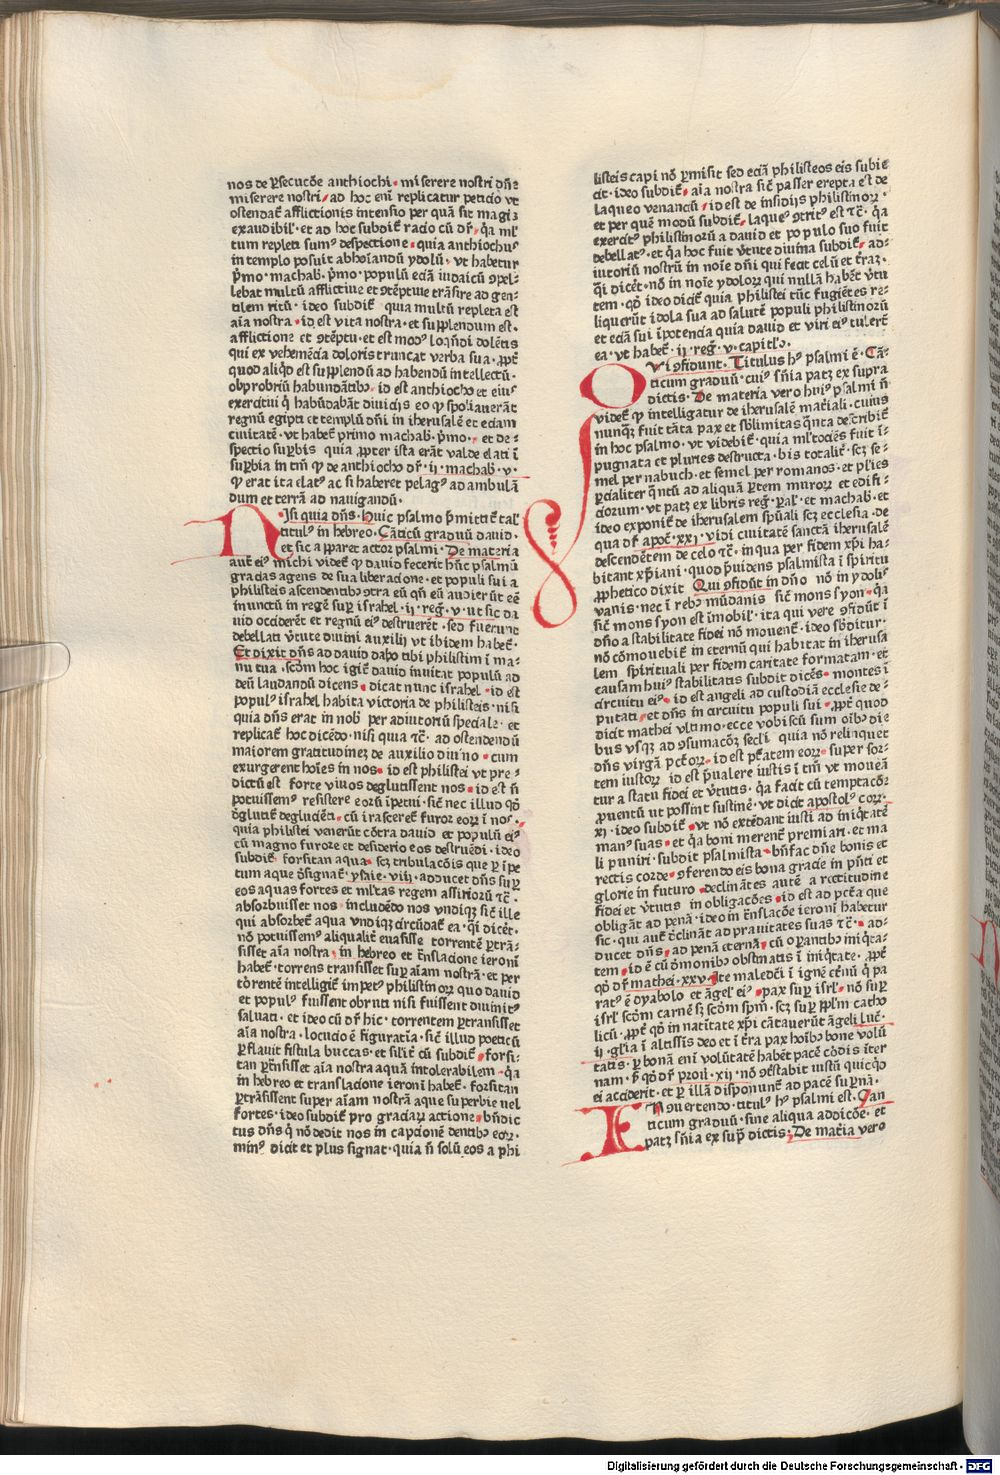 nos de ꝑsecucōe anthiochi · miserere nostri dn̄e
miserere nostri / ad hoc em̄ replicatur peticio vt
ostendat̄ afflictionis intensio per quā fit magis
exaudibil' · et ad hoc subdit̄ racio cū dr̄ · q̄a ml'
tum repleti sumꝰ despectione · quia anthiochus
in templo posuit abhoīandū ydolū · vt habetur
p̄mo · machab · p̄mo · populū eciā iudaicū ꝯpel-
lebat multū afflictiue et ꝯtēptiue trāsire ad gen-
tilem ritū · ideo subdit̄ quia multū repleta est
aīa nostra · id est vita nostra · et supplendum est ·
afflictione et ꝯtēptu · et est modꝰ loqn̄di dolētis
qui ex vehemēcia doloris truncat verba sua · ꝓpt̄
quod aliqd est supplendū ad habendū intellectū ·
obprobriū habundātibꝫ · id est anthiocho et eius
exercitui q̄ habūdabāt diuicijs eo ꝙ spoliauerāt
regnū egipti et templū dn̄i in iherusalē et eciam
ciuitatē · vt habet̄ primo machab · p̄mo · et de-
spectio suꝑbis quia ꝓpter ista erāt valde elati ī
suꝑbia in tm̄ ꝙ de anthiocho dr̄ · ij · machab · v ·
ꝙ erat ita elatꝰ ac si haberet pelagꝰ ad ambulā
dum et terrā ad nauigandū ·
Nisi quia dn̄s · Huic psalmo p̄mittit̄ tal'
titulꝰ in hebreo · Cāticū graduū dauid ·
et sic apparet actor psalmi · De materia
aut̄ eiꝰ michi videt̄ ꝙ dauid fecerit hūc psalmū
gracias agens de sua liberacione · et populi sui a
philisteis ascendentibꝫ ꝯtra eū qn̄ eū audierūt eē
inunctū in regē suꝑ israhel · ij · reḡ · v · ut sic da
uid occiderēt et regnū eiꝰ destruerēt · sed fuerunt
debellati v̄tute diuini auxilij vt ibidem habet̄ ·
Et dixit dn̄s ad dauid dabo tibi philistim ī ma-
nu tua · scd̄m hoc igit̄ dauid inuitat populū ad
deū laudandū dicens · dicat nunc israhel · id est
populꝰ israhel habita victoria de philisteis · nisi
quia dn̄s erat in nob̄ per adiutoriū speciale · et
replicat̄ hoc dicēdo · nisi quia tc̄ · ad ostendendū
maiorem gratitudinez de auxilio diuino · cum
exurgerent hoīes in nos · id est philistei vt pre-
dictū est forte viuos deglutissent nos · id est n̄
potuissemꝰ resistere eorū īpetui · sic̄ nec illud qd̄
deglutit̄ degluciēti · cū irasceret̄ furor eorꝝ ī nos ·
quia philistei venerūt cōtra dauid et populū eiꝰ
cū magno furore et desiderio eos destruēdi · ideo
subdit̄ forsitan aqua · scꝫ tribulacōis que ꝑ īpe
tum aque dsignat̄ · ysaie · viij · adducet dn̄s suꝑ
eos aquas fortes et ml'tas regem assiriorū tc̄ ·
absorbuisset nos · includēdo nos vndiqꝫ sic̄ ille
qui absorbet̄ aqua vndiqꝫ circūdat̄ ea · q̄i dicēt ·
nō potuissemꝰ aliqualit̄ euasisse torrentē ꝑtrā-
sisset aīa nostra · in hebreo et trāslacione ieroni
habet̄ · torrens transisset suꝑ aīam nostrā · et per
torrentē intelligit̄ impetꝰ philistinorꝝ quo dauid
et populꝰ fuissent obruti nisi fuissent diuinitꝰ
saluati · et ideo cū dr̄ hic · torrentem ꝑtransisset
aīa nostra · locucio ē figuratiua · sic̄ illud poeticū
ꝑflauit fistula buccas · et silīt̄ cū subdit̄ · forsi-
tan ꝑtrāsisset aīa nostra aquā intolerabilem · q̄a
in hebreo et translacione ieroni habet̄ · forsitan
ꝑtrāsissent super aīam nostrā aque superbie uel
fortes · ideo subdit̄ pro graciaꝝ actione · bn̄dic
tus dn̄s q̄ nō dedit nos in capcionē dentibꝫ eorꝝ ·
minꝰ dicit et plus signat · quia n̄ solū eos a phi
listeis capi nō ꝑmisit sed eciā philisteos eis subie
cit · ideo subdit̄ · aīa nostra sic̄ passer erepta est de
laqueo venanciū · id est de insidijs philistinorꝝ ·
et per quē modū subdit̄ · laqueꝰ ꝯtritꝰ est tc̄ · q̄a
exercitꝰ philistinorū a dauid et populo suo fuit
debellatꝰ · et q̄a hoc fuit v̄tute diuina subdit̄ · ad-
iutoriū nostrū in noīe dn̄i qui fecit celū et trāz ·
q̄i dicēt · nō in noīe ydolorꝝ qui nullā habēt v̄tu
tem · qd̄ ideo dicit̄ quia philistei tūc fugiētes re-
liquerūt idola sua ad salutē populi philistinorū
et eciā sui īpotencia quia dauid et viri eiꝰ tulerūt
ea · vt habet̄ · ij · reḡ · v · capitl'o ·
Qvi ꝯfidunt · Titulus hꝰ psalmi ē · Cā-
ticum graduū · cuiꝰ sn̄ia patꝫ ex supra
dictis · De materia vero huiꝰ psalmi n̄
videt̄ ꝙ intelligatur de iherusalē mat̄iali · cuius
nunqꝫ fuit tāta pax et stbilimitas qn̄ta describit̄
in hoc psalmo · vt videbit̄ · quia ml'tociēs fuit ī-
pugnata et pluries destructa · bis totalit̄ · scꝫ se-
mel per nabuch · et semel per romanos · et pl'ies
ꝑcialiter qn̄tū ad aliquā ꝑtem murorꝝ et edifi-
ciorum · vt patꝫ ex libris reḡ · ꝑal' · et machab · et
ideo exponit̄ de iherusalem spūali scꝫ ecclesia · de
qua dr̄ apoc̄ · xxj · vidi ciuitatē sanctā iherusalē
descendētem de celo tc̄ · in qua per fidem xp̄i ha-
bitant xp̄iani · quod p̄uidens psalmista ī spiritu
ꝓphetico dixit Qui ꝯfidūt in dn̄o nō in ydolis
vanis · nec ī rebꝫ mūdanis sic̄ mons syon · q̄a
sic̄ mons syon est īmobil' · ita qui vere ꝯfidūt ī
dn̄o a stabilitate fidei nō mouent̄ · ideo sb̄ditur ·
nō cōmouebit̄ in eternū qui habitat in iherusa
lem spirituali per fidem caritate formatam · et
causam huiꝰ stabilitatis subdit dicēs · montes ī
circuitu eiꝰ · id est angeli ad custodiā ecclesie de-
putati · et dn̄s in circuitu populi sui · ꝓpt̄ quod
dicit mathei vltimo · ecce vobiscū sum oībꝫ die
bus vsqꝫ ad ꝯsumacōꝫ secl'i quia nō relinquet
dn̄s virgā pctorꝝ · id est ptātem eorꝝ · super sor-
tem iustorꝝ id est p̄ualere iustis ī tm̄ vt moueā
tur a statu fidei et v̄tutis · q̄a facit cū temptacōꝫ
ꝓuentū ut possint sustinē · vt dicit apostol'ꝰ corꝝ ·
xj · ideo subdit̄ · vt nō extēdant iusti ad iniq̄tatē
manꝰ suas · et q̄a boni merent̄ premiari · et ma
li puniri · subdit psalmista · bn̄fac dn̄e bonis et
rectis corde · ꝯferendo eis bona gracie in pn̄ti et
glorie in futuro · declinātes autē a rectitudine
fidei et v̄tutis in obligacōes · id est ad pctā que
obligāt ad penā · ideo in trāslacōe ieroni habetur
sic · qui aut̄ dclināt ad prauitates suas tc̄ · ad-
ducet dn̄s · ad penā eternā · cū oꝑantibꝫ iniq̄ta-
tem · id ē cū dmonibꝫ obstinatis ī iniq̄tate · ꝓpt̄
qd̄ dr̄ mathei · xxv · Ite maledcti ī ignē et̄nū q̄ pa
ratꝰ ē dyabolo et āgel' eiꝰ · pax suꝑ isrl' · nō suꝑ
isrl' scd̄m carnē sꝫ scd̄m spm̄ · scꝫ suꝑ ppl'm catho
licū · ꝓpt̄ qd̄ in natītate xp̄i cātauerūt āgeli luc̄ ·
ij · gl'ia ī altissis deo et ī t̄ra pax hoībꝫ bone volū
tatis · ꝑ bonā eni volūtatē habēt pacē cōdis īter
nam · p̄ qd̄ dr̄ prou · xij · nō ꝯtstabit iustū quicqd
ei acciderit · et ꝑ illā disponunt̄ ad pacē suꝑnā ·
IN ꝯuertendo · titulꝰ hꝰ psalmi est · Can
ticum graduū · sine aliqua addicōe · et
patꝫ sn̄ia ex sup̄ dictis · De mat̄ia vero
Digitalisierung gefördert durch die Deutsche Forschungsgemeinschaft - DFG